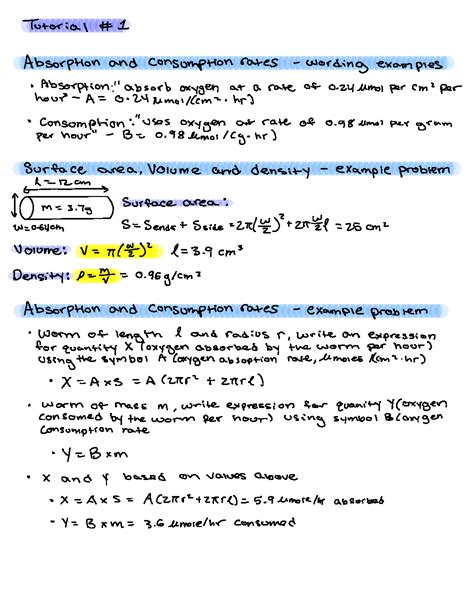 Tutorial #1
Absorption and Consumption rates - wording examples
• Absorption: "absorb oxygen at a rate of 0.24 µmol per cm² per
hour" - A = 0.24 µmol/(cm² · hr)
• Consomption: "uses oxygen at rate of 0.98 µmol per gram
per hour" - B = 0.98 µmol/(g · hr)
Surface area, Volume and density - example problem
l = 12 cm
m = 3.7g
w = 0.64cm
Surface area:
S = Sends + Sside = 2π(w/2)² + 2π w/2 l = 25 cm²
Volume: V = π(w/2)² l = 3.9 cm³
Density: ρ = m/V = 0.96 g/cm³
Absorption and Consumption rates - example problem
• Worm of length l and radius r, write an expression
for quantity X (oxygen absorbed by the worm per hour)
using the symbol A (oxygen absoption rate, µmoles/(cm² · hr)
• X = A × S = A (2πr² + 2πrl)
• Worm of mass m, write expression for quanity Y (oxygen
consomed by the worm per hour) using symbol B (oxygen
Consumption rate
• Y = B × m
• X and Y based on values above
• X = A × S = A(2πr² + 2πrl) = 5.9 µmole/hr absorbed
• Y = B × m = 3.6 µmole/hr consumed